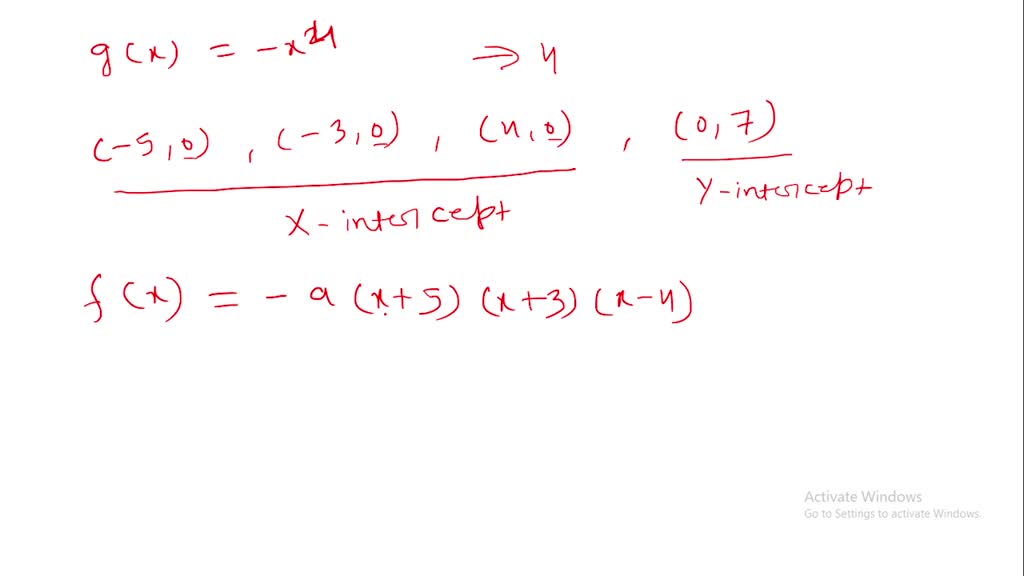 g(x) = -x⁴ ⇒ 4
(-5,0), (-3,0), (4,0), (0,7)
X-intercept Y-intercept
f(x) = - a (x+5) (x+3) (x-4)
Activate Windows
Go to Settings to activate Windows.